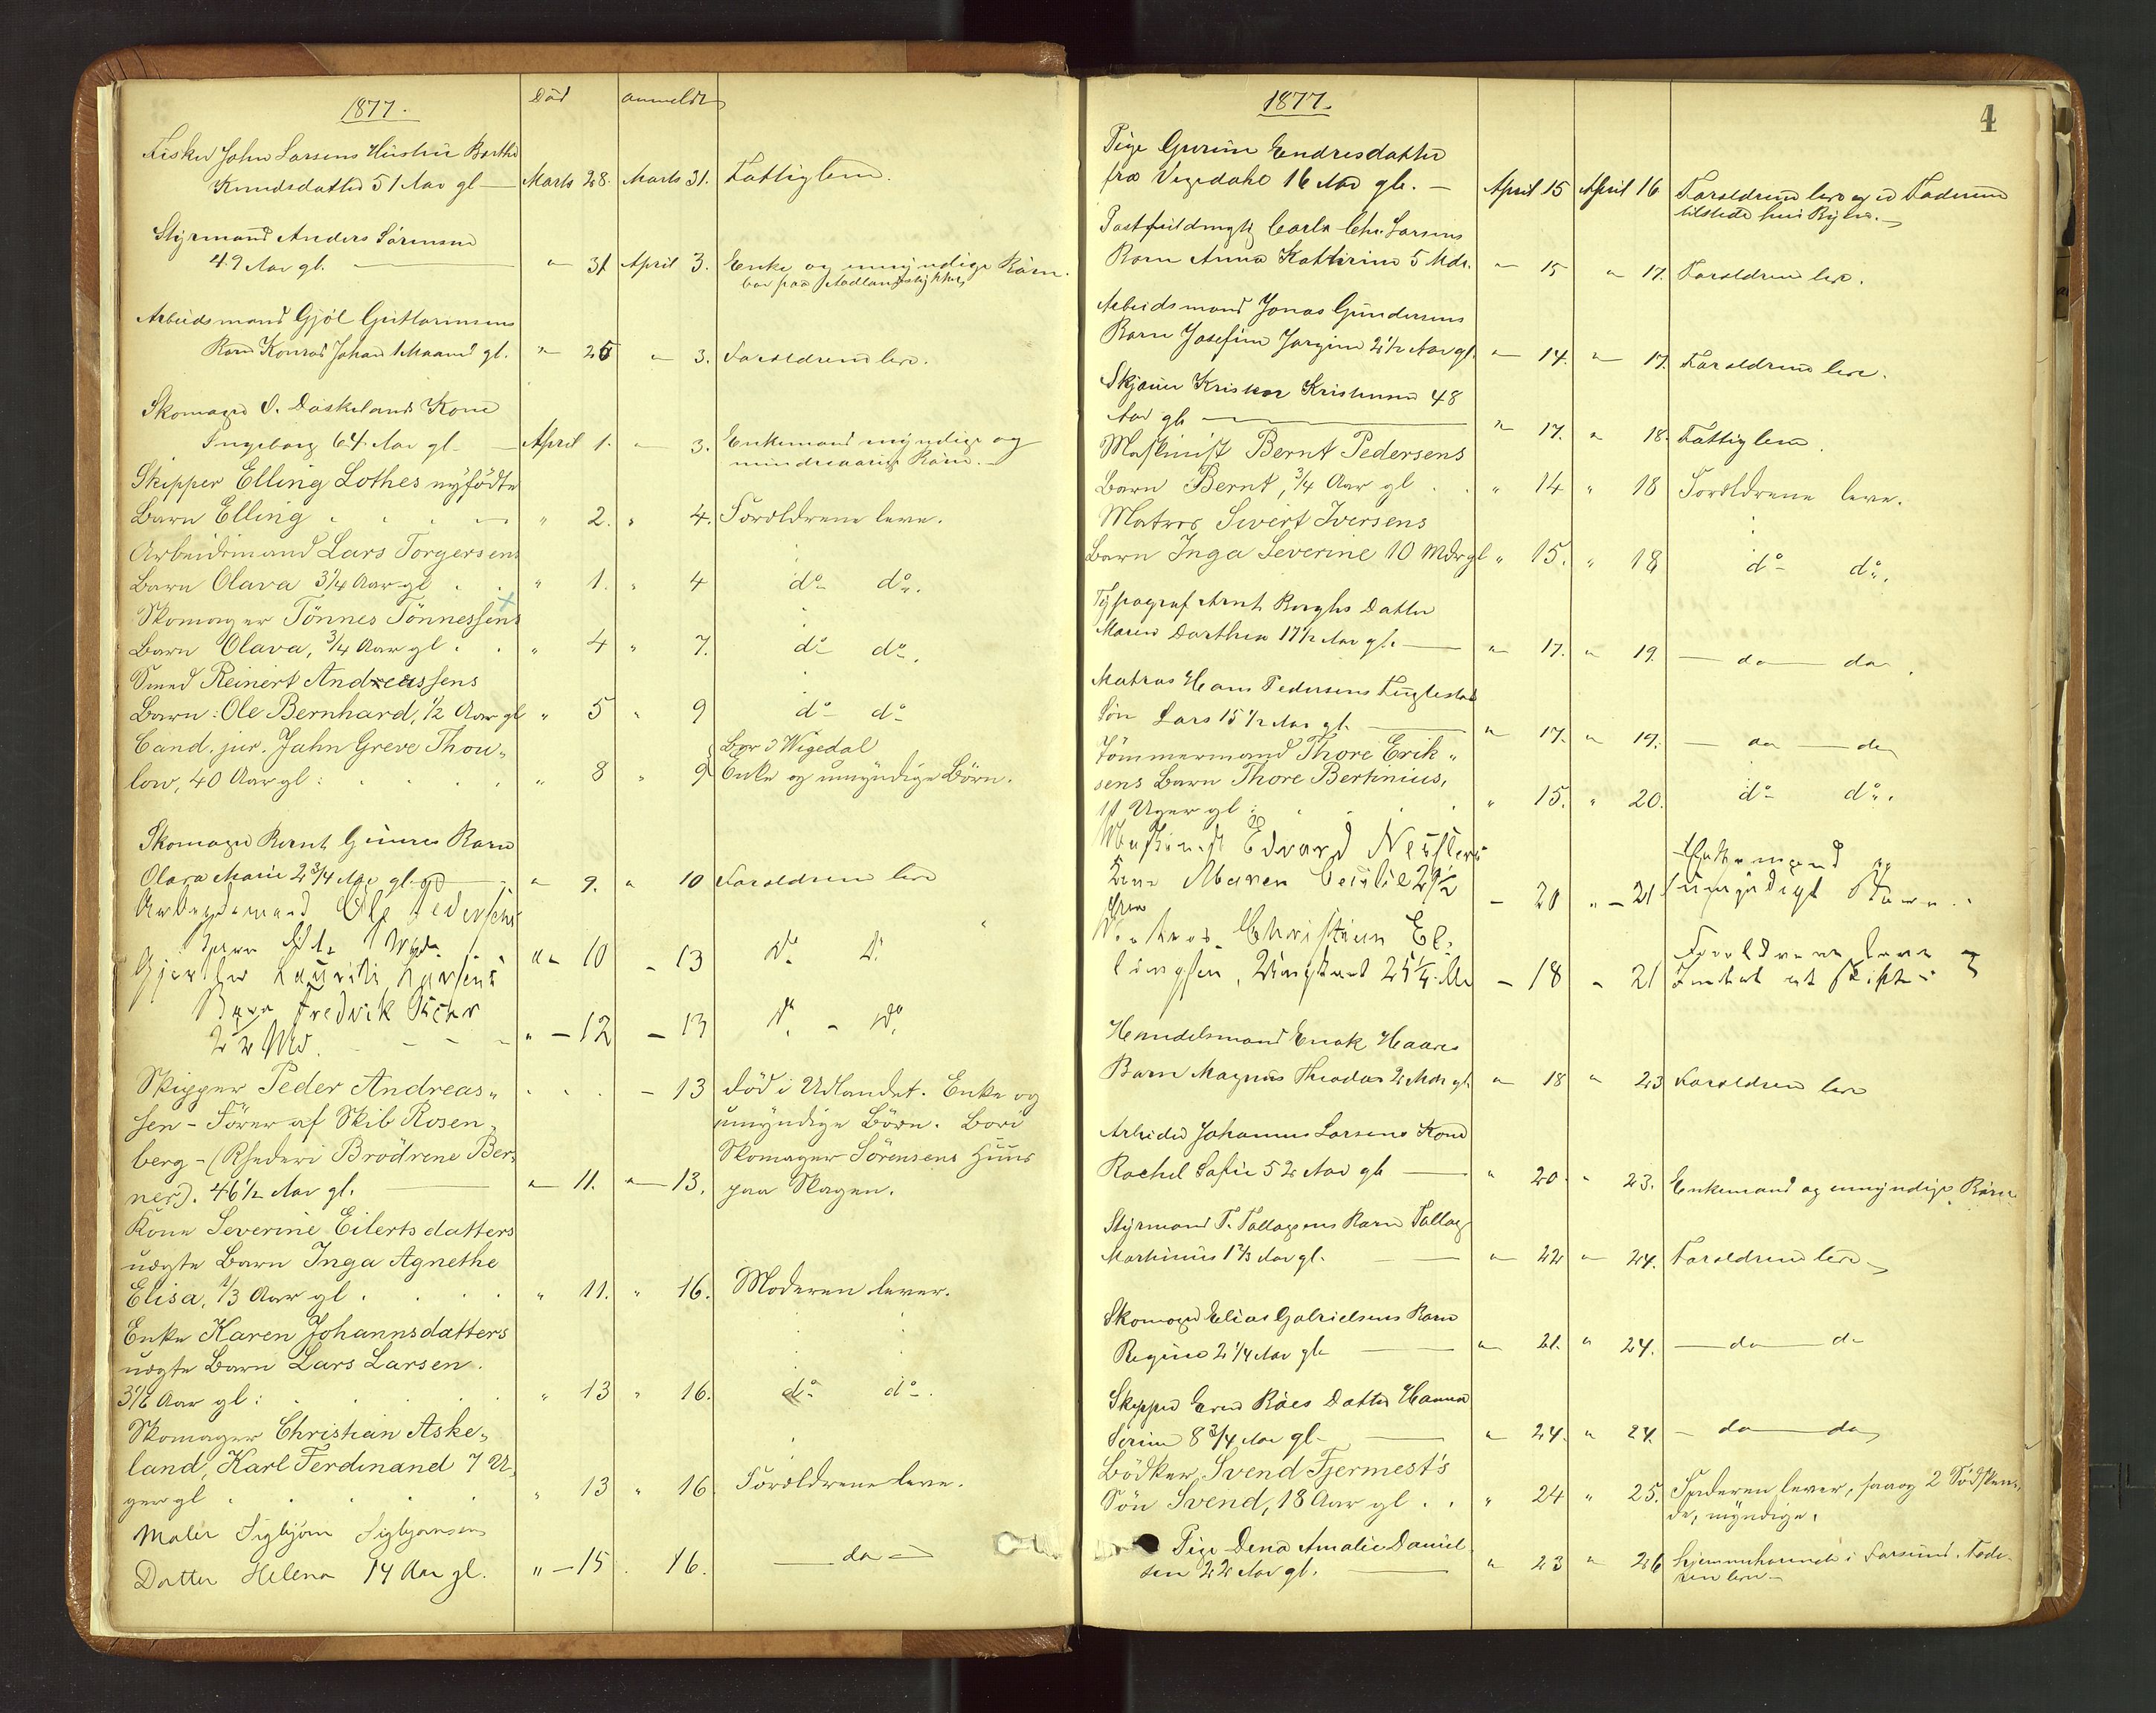 1877. Död anmeldt
Fisker John Larsens Hustru Berthe
Knudsdatter 51 Aar gl — Marts 28. Marts 31. Fattiglem.
Styrmand Anders Sörensen
49 Aar gl. — " 31 April 3. Enke og umyndige Börn.
bor paa Aadlandstykket
Arbeidsmand Gjöl Guttormsens
Barn Konrad Johan 1 Maaned gl. " 26 " 3. Forældrene leve.
Skomager O. Daskelands Kone
Ingeborg 64 Aar gl. — April 1. " 3. Enkemand myndige og
mindreaarige Börn.
Skipper Elling Lothes nyfödte
Barn Elling " 2. " 4. Forældrene leve.
Arbeidsmand Lars Torgersens
Barn Olava 3 1/4 Aar gl " 1. " 4 do do.
Skomager Tönnes Tönnessens
Barn Olava, 3/4 Aar gl. " 4 " 7. do do.
Smed Reinert Andreassens
Barn: Ole Bernhard, 1/2 Aar gl " 5 " 9 do do
Cand. jur. Jahn Greve Thou-
low, 40 Aar gl: " 8 " 9 Bor i Wigedal
Enke og umyndige Börn.
Skomager Bernt Barn
Olava Marie 2 3/4 Aar gl. " 9. " 10 Forældrene leve
Arbeidsmand Ole Pedersens
" 10 - 13 do do
Gjørtler Lauritz Larsens
Barn Fredrik
2 1/2 Md. " - 12 - 13 do - do
Skipper Peder Andreas- - 13 död i Udlandet. Enke og
sen - Förer af Skib Rosen- umyndige Börn. Bor i
berg - (Rhederi Brödrene Ber- Skomager Sörensens Huus
ner). 46 1/2 Aar gl. " 11. " 13. paa Skagen.
Kone Severine Eilertsdatters
uægte Barn Inga Agnethe
Elisa, 1/3 Aar gl. " 11. " 16. Moderen lever.
Enke Karen Johannsdatters
uægte Barn Lars Larsen.
3 1/6 Aar gl: " 13 " 16. do do.
Skomager Christian Aske-
land, Karl Ferdinand 7 U-
ger gl " 13 " 16. Forældrene leve.
Maler Sigbjörn Sigbjörnsens
Datter Helena 14 Aar gl. " - 15 . 16. — do —
4
1877.
Pige Gurine Endresdatter
fra Vigedahl 16 Aar gl. — April 15 April 16 Forældrene leve og er Faderen
tilstede her i Byen.
Postfuldmægtig Carls Chr. Larsens
Barn Anna Kathrine 5 Mdr. " 15 " 17. Forældrene leve.
Arbeidsmand Jonas Gundersens
Barn Josefine Jorgine 2 1/2 Aar gl. " 14. " 17. Forældrene leve.
Kristensen 48
Aar gl — " 17. " 18. Fattiglem.
Maskinist Bernt Pedersens
Barn Bernt, 3/4 Aar gl . . " 14 " 18 Forældrene leve.
Matros Sivert Iversens
Barn Inga Severine 10 Mdr gl " 15. " 18 do do.
Typograf Arnt Berghs Datter
Maren Dorthea 17 1/2 Aar gl. — " 17. " 19. — do — do
Matros Hans Pedersens Fuglestad
Sön Lars 15 1/2 Aar gl. — " 17. " 19. — do — do
Tömmermand Thore Erik-
sens Barn Thore Bertinius,
11 Uger gl: " 15. " 20. do do.
Maskinist Edvard
Maren Cecilie 29 1/2 Enkemand og
- 20 " - 21 umyndigt Barn.
Matros Christian El-
lingsen, 25 1/4 - 18 - 21 Forældrene leve
Intet at skifte
Handelsmand Enok Haares
Barn Magnus Theodor 2 Mdr gl. " 18 " 23 Forældrene leve
Arbeider Johannes Larsens Kone
Rachel Sofie 52 Aar gl — " 20 " 23. Enkemand og umyndige Börn
Styrmand T. Tallagsens Barn Tallag
Martinius 1 2/3 Aar gl. — " 22 " 24. Forældrene leve
Skomager Elias Gabrielsens Barn
Regine 2 1/4 Aar gl. — " 21. " 24. — do — do
Skipper Roes Datter Hanna
Serine 8 3/4 Aar gl — " 24. " 24. — do — do
Bödker Svend Fjermest's
Sön Svend, 18 Aar gl . . " 24 " 25. Faderen lever, samt 2 Södsken-
de, myndige.
Pige Dena Amalie Daniel-
sen 22 Aar gl. — " 23 " 26 hjemmehørende i Farsund. Fade-
ren lever